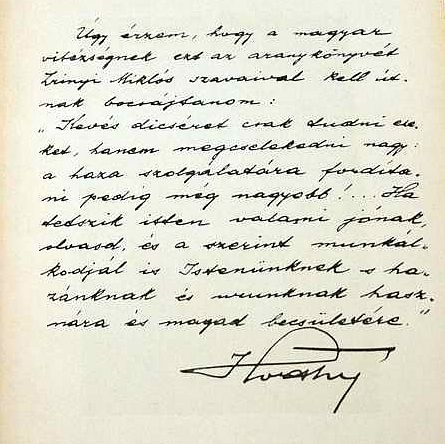 Úgy érzem, hogy a magyar
vitézségnek ezt az aranykönyvét
Zrinyi Miklós szavaival kell út-
nak bocsájtanom:
"Kevés dicséret csak tudni eze-
ket, hanem megcselekedni nagy:
a haza szolgálatára fordíta-
ni pedig még nagyobb!... Ha
tetszik itten valami jónak,
olvasd, és a szerint munkál-
kodjál is Istenünknek s ha-
zánknak és urunknak hasz-
nára és magad becsületére."
Horthy